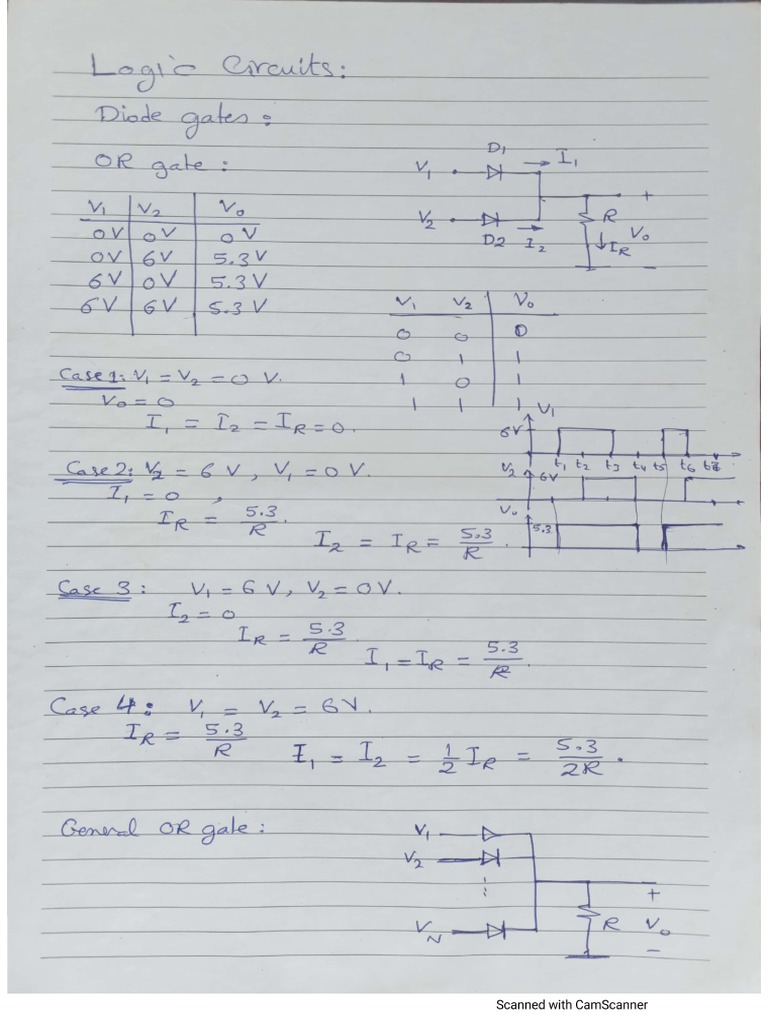 Logic Circuits:
Diode gates:
OR gate:
V₁ V₂ V₀
0V 0V 0V
0V 6V 5.3V
6V 0V 5.3V
6V 6V 5.3V
V₁ D₁ I₁
V₂ D2 I₂
R I_R + V₀ −
V₁ V₂ V₀
0 0 0
0 1 1
1 0 1
1 1 1
Case 1: V₁ = V₂ = 0 V.
V₀ = 0
I₁ = I₂ = I_R = 0.
V₁
6V
t₁ t₂ t₃ t₄ t₅ t₆
V₂ 6V
V₀ 5.3
Case 2: V₂ = 6 V, V₁ = 0V.
I₁ = 0,
I_R = 5.3/R.
I₂ = I_R = 5.3/R.
Case 3: V₁ = 6 V, V₂ = 0V.
I₂ = 0
I_R = 5.3/R
I₁ = I_R = 5.3/R.
Case 4: V₁ = V₂ = 6V.
I_R = 5.3/R
I₁ = I₂ = 1/2 I_R = 5.3/2R.
General OR gate:
V₁
V₂
⋮
V_N
R + V₀ −
Scanned with CamScanner